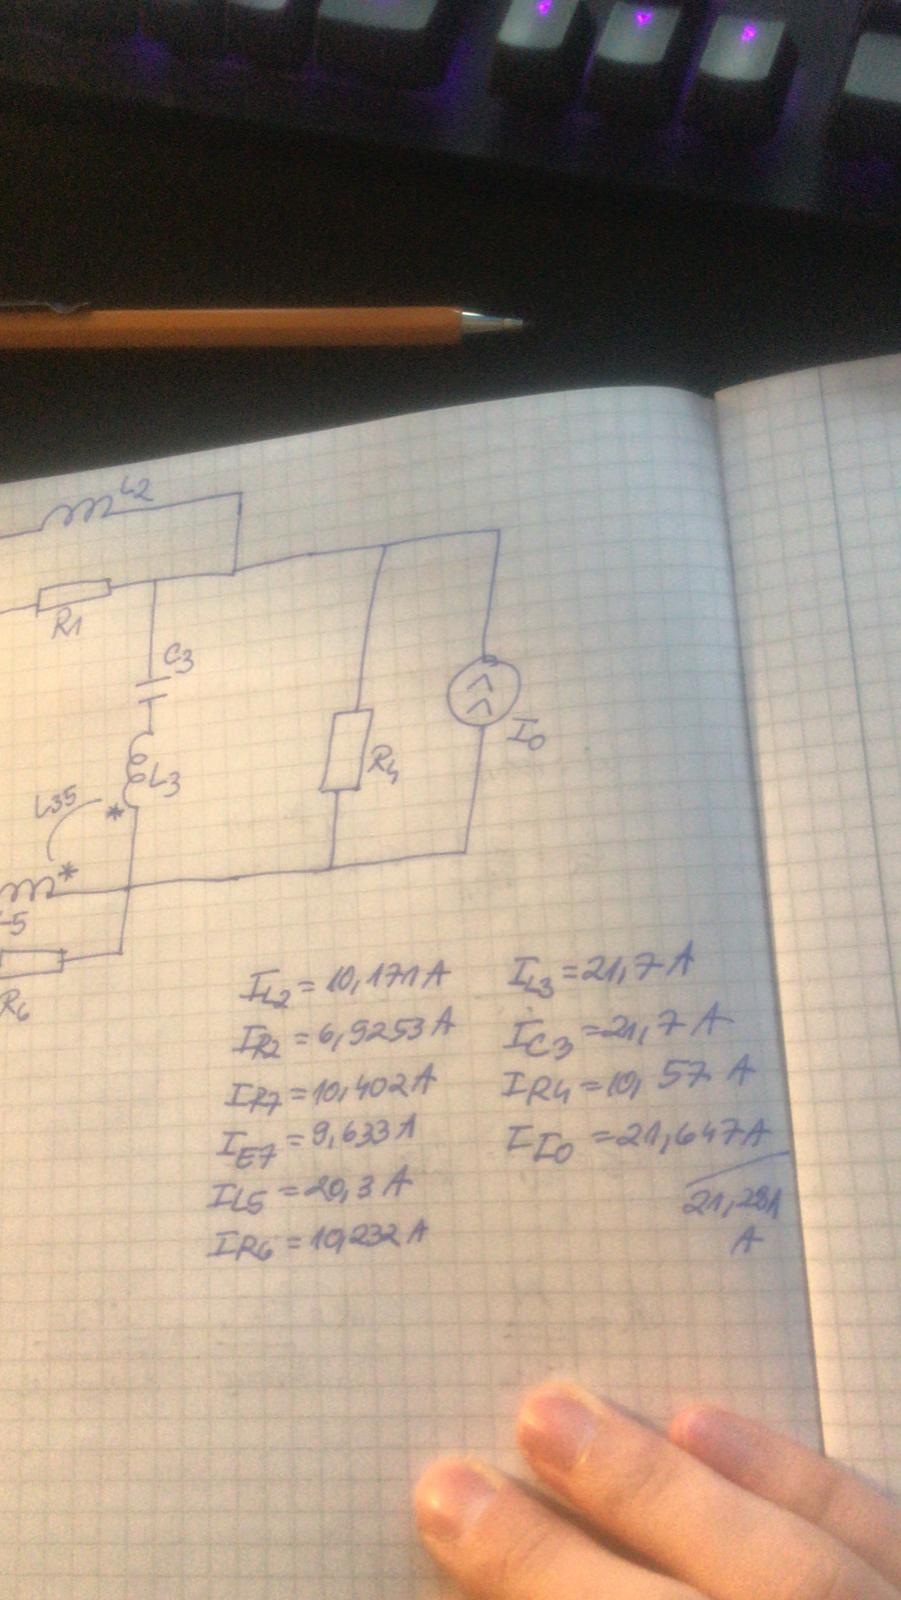 L2
R1
C3
L3
R4
I0
L35
*
*
-5
R6
IL2 = 10,171 A
IR2 = 6,9253 A
IR7 = 10,402 A
IE7 = 9,633 A
IL5 = 20,3 A
IR6 = 10,232 A
IL3 = 21,7 A
IC3 = 21,7 A
IR4 = 10,57 A
II0 = 21,647 A
A